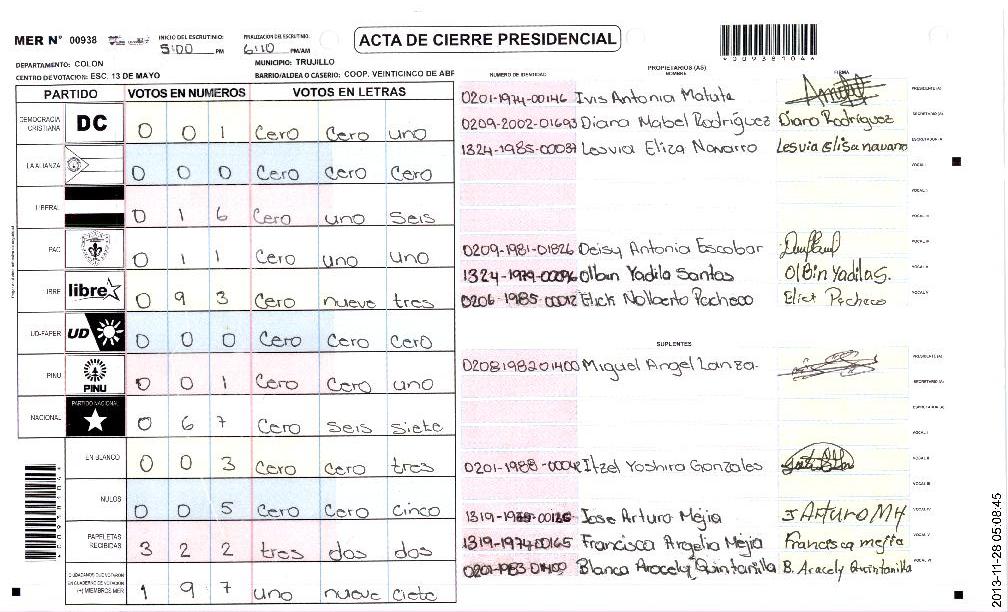 MER N° 00938
INICIO DEL ESCRUTINIO: 5:00 PM
FINALIZACION DEL ESCRUTINIO: 6:10 PM/AM
ACTA DE CIERRE PRESIDENCIAL
DEPARTAMENTO: COLON
MUNICIPIO: TRUJILLO
CENTRO DE VOTACION: ESC. 13 DE MAYO
BARRIO/ALDEA O CASERIO: COOP. VEINTICINCO DE ABF
PARTIDO VOTOS EN NUMEROS VOTOS EN LETRAS
DEMOCRACIA CRISTIANA DC 0 0 1 Cero Cero uno
LA ALIANZA 0 0 0 Cero Cero Cero
LIBERAL 0 1 6 Cero uno Seis
PAC 0 1 1 Cero uno uno
LIBRE libre 0 9 3 Cero nueve tres
UD-FAPER UD 0 0 0 Cero Cero Cero
PINU PINU 0 0 1 Cero Cero uno
NACIONAL PARTIDO NACIONAL 0 6 7 Cero Seis Siete
EN BLANCO 0 0 3 Cero Cero tres
NULOS 0 0 5 Cero Cero Cinco
PAPELETAS RECIBIDAS 3 2 2 tres dos dos
CIUDADANOS QUE VOTARON EN CUADERNO DE VOTACION (+) MIEMBROS MER 1 9 7 uno nueve ciete
PROPIETARIOS (AS)
NUMERO DE IDENTIDAD NOMBRE FIRMA
0201-1974-00146 Ivis Antonia Matute PRESIDENTE (A)
0209-2002-01693 Diana Mabel Rodríguez Diana Rodríguez SECRETARIO (A)
1324-1985-00037 Lesvia Eliza Navarro Lesvia Elisa navarro ESCRUTADOR (A)
VOCAL I
VOCAL II
VOCAL III
0209-1981-01826 Deisy Antonia Escobar
1324-1979-00096 Olban Yadila Santos Olbin Yadila S. VOCAL V
0206-1985-00012 Elick Nolberto Pacheco Elict Pacheco
SUPLENTES
0208198201400 Miguel Angel Lanza. PRESIDENTE (A)
SECRETARIO (A)
ESCRUTADOR (A)
VOCAL I
0201-1988-00042 Itzel Yoshira Gonzales VOCAL II
VOCAL III
1319-1985-00126 Jose Arturo Mejia J Arturo M H VOCAL IV
1319-1974-00165 Francisca Argelia Mejia Francisca mejia VOCAL V
0201-1983-01409 Blanca Aracely Quintanilla B. Aracely Quintanilla VOCAL VI
2013-11-28 05:08:45